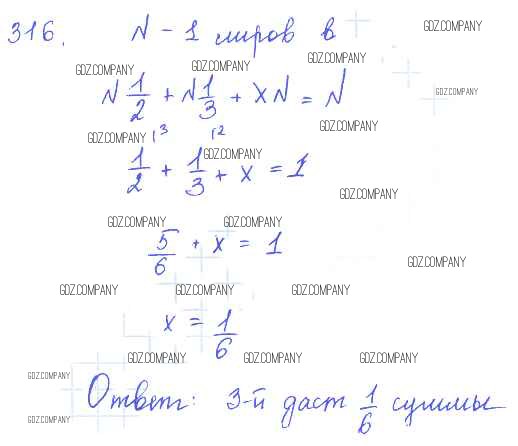 316. N - 1 миров в
GDZ.COMPANY
GDZ.COMPANY GDZ.COMPANY
GDZ.COMPANY
N 1/2 + N 1/3 + xN = N
GDZ.COMPANY GDZ.COMPANY
1/2 ⌈3 + 1/3 ⌈2 + x = 1
GDZ.COMPANY
GDZ.COMPANY
GDZ.COMPANY GDZ.COMPANY
5/6 + x = 1
GDZ.COMPANY
GDZ.COMPANY GDZ.COMPANY GDZ.COMPANY
x = 1/6
GDZ.COMPANY GDZ.COMPANY GDZ.COMPANY
GDZ.COMPANY
Ответ: 3-й даст 1/6 суммы
GDZ.COMPANY